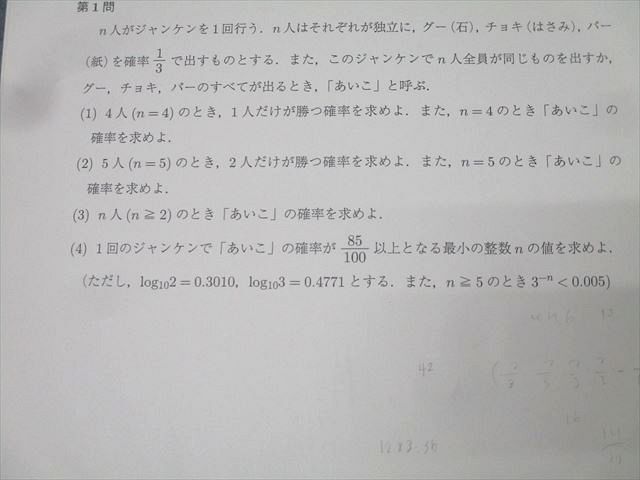 第1問
n人がジャンケンを1回行う．n人はそれぞれが独立に，グー(石)，チョキ(はさみ)，パー
(紙)を確率 1/3 で出すものとする．また，このジャンケンでn人全員が同じものを出すか，
グー，チョキ，パーのすべてが出るとき，「あいこ」と呼ぶ．
(1) 4人(n=4)のとき，1人だけが勝つ確率を求めよ．また，n=4のとき「あいこ」の
確率を求めよ．
(2) 5人(n=5)のとき，2人だけが勝つ確率を求めよ．また，n=5のとき「あいこ」の
確率を求めよ．
(3) n人(n≧2)のとき「あいこ」の確率を求めよ．
(4) 1回のジャンケンで「あいこ」の確率が 85/100 以上となる最小の整数nの値を求めよ．
(ただし，log₁₀2=0.3010，log₁₀3=0.4771とする．また，n≧5のとき3⁻ⁿ<0.005)
42